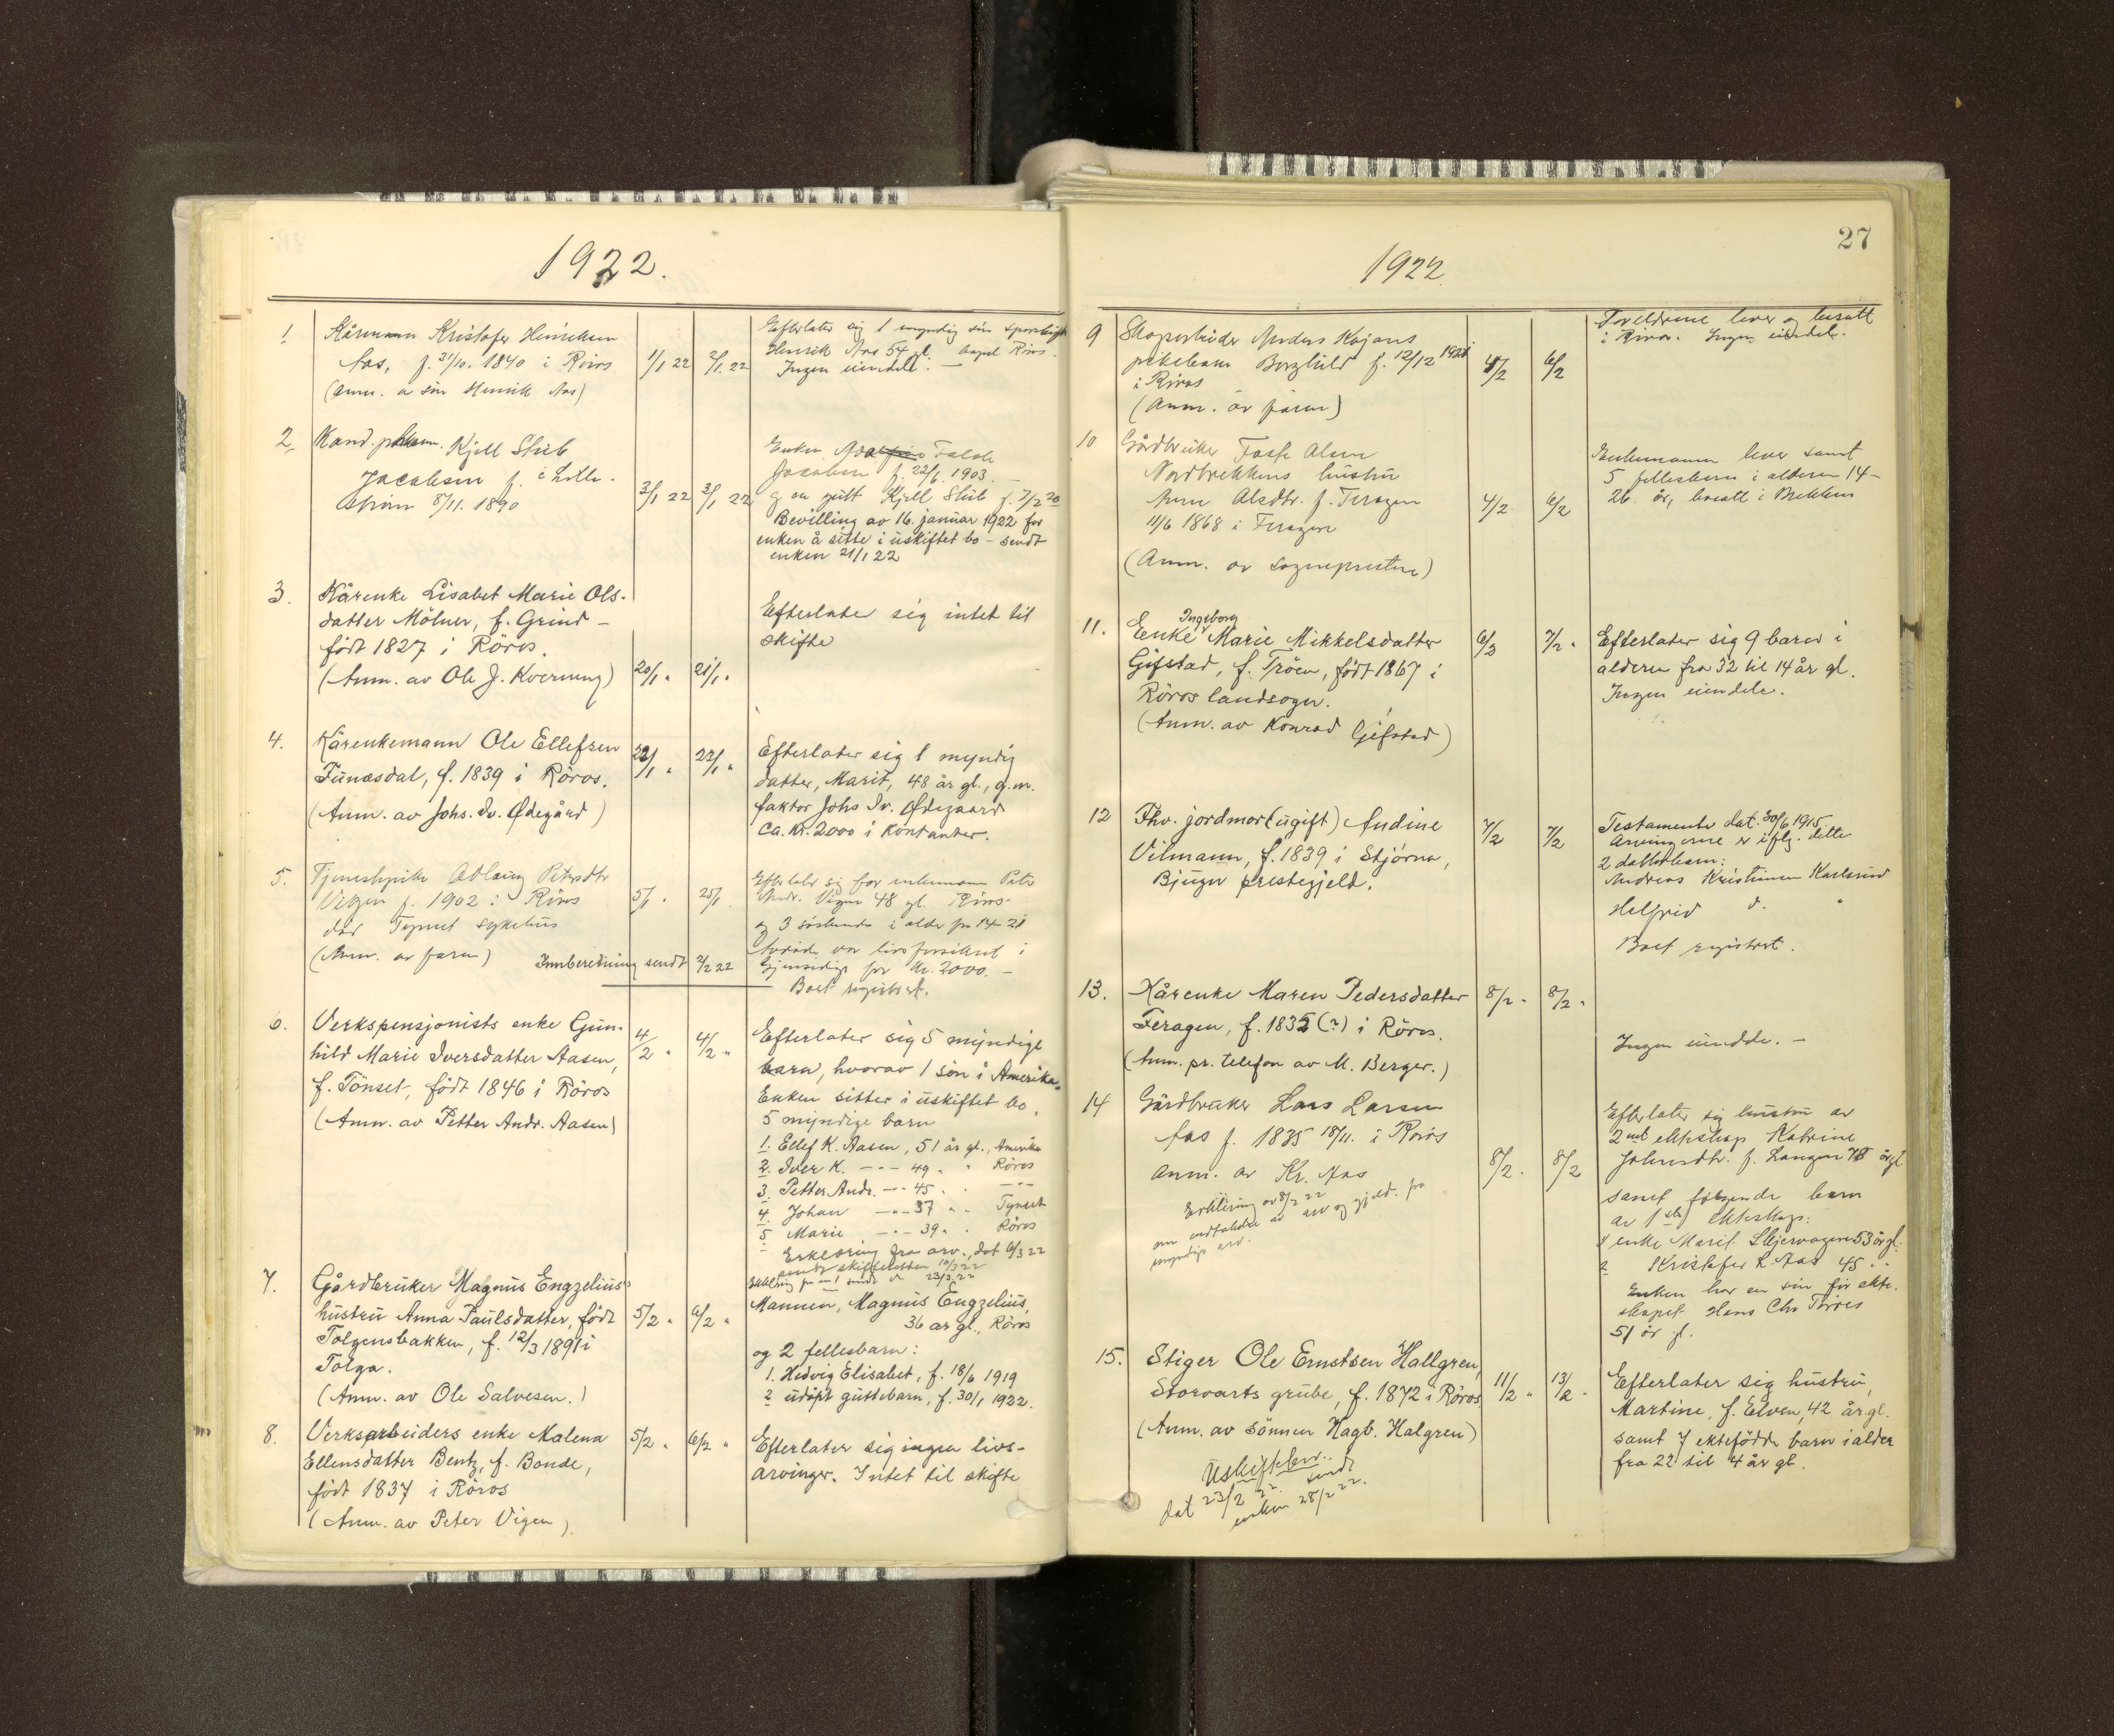 1922.
1 Kårmann Kristofer Henriksen
Aas, f. 31/10. 1840 i Röros 1/1 22 2/1. 22
(Anm. a sön Henrik Aas)
Efterlater sig 1 myndig sön
Henrik Aas 54 gl. Röros.
Ingen eiendele. —
2 Kand. Kjell Stub
Jacobsen f. i Lille-
strøm 8/11. 1890 3/1 22 3/1 22
Enken Falch
Jacobsen f. 22/6. 1903.
og en gutt Kjell Stub f. 7/2 20
Bevilling av 16. januar 1922 for
enken å sitte i uskiftet bo - sendt
enken 21/1 22
3. Kårenke Lisabet Marie Ols-
datter Mölner, f. Grind -
född 1827 i Röros.
(Anm. av Ole J. Kverneng) 20/1 " 21/1 "
Efterlater sig intet til
skifte
4. Kårenkemann Ole Ellefsen
Funæsdal, f. 1839 i Röros.
(Anm. av Johs. Iv. Ødegård) 22/1 " 23/1 "
Efterlater sig 1 myndig
datter, Marit, 48 år gl., g.m.
faktor Johs Iv. Ødegaard
Ca. kr. 2000 i kontanter.
5. Tjenestepike Adlaug Petersdtr
Vigen f. 1902 i Röros 5/1 " 25/1
död Tynset sykehus
(Anm. av faren) Innberetning sendt 2/2 22
Efterlater sig far enkemann Peter
Andr. Vigen 48 gl. Röros
og 3 söskende i alder fra 14-21
Avdöde var livsforsikret i
Gjensidige for kr. 2000. —
Boet registrert.
6. Verkspensjonists enke Gun-
hild Marie Iversdatter Aasen, 4/2 " 4/2 "
f. Tönset, född 1846 i Röros
(Anm. av Petter Andr. Aasen)
Efterlater sig 5 myndige
barn, hvorav 1 sön i Amerika.
Enken sitter i uskiftet bo.
5 myndige barn
1. Ellef K. Aasen, 51 år gl., Amerika
2. Iver K. - " - 49 " " Röros
3. Petter Andr. - " - 45 " " - " -
4. Johan - " - 37 " " Tynset
5 Marie - " - 39 " " Röros
Erklæring fra arv., dat 6/3 22
sendt skifteretten 10/3 22
Erklæring sendt 23/3 22
7. Gårdbruker Magnus Engzelius'
hustru Anna Paulsdatter, född 5/2 " 6/2 "
Tolgensbakken, f. 12/3 1891 i
Tolga.
(Anm. av Ole Salvesen.)
Mannen, Magnus Engzelius,
36 år gl., Röros
og 2 fellesbarn:
1. Hedvig Elisabet, f. 18/6 1919
2 udöpt guttebarn, f. 30/1 1922.
8. Verksarbeiders enke Malena 5/2 " 6/2 "
Ellensdatter Bentz, f. Bonde,
född 1837 i Röros
(Anm. av Peter Vigen)
Efterlater sig ingen livs-
arvinger. Intet til skifte
27
1922
9 Skogarbeider Anders Kojans
pikebarn Borghild f. 12/12 1921 4/2 6/2
i Röros
(Anm. av faren)
Foreldrene lever og bosatt
i Röros. Ingen eiendele.
10 Gårdbruker Tosten Olsen
Nordbrekkens hustru
Anne Olsdtr. f. Feragen 4/2 6/2
11/6 1868 i Feragen
(Anm. av sogneprestene)
Enkemannen lever samt
5 fellesbarn i alderen 14-
26 år, bosatt i Brekken
11. Enke Ingeborg Marie Mikkelsdatter 6/2 7/2 "
Gifstad, f. Tröen, född 1867 i
Röros landsogn.
(Anm. av Konrad Gifstad)
Efterlater sig 9 barn i
alderen fra 32 til 14 år gl.
Ingen eiendele.
12 Fhv. jordmor (ugift) Andine 7/2 7/2
Vilmann, f. 1839 i Stjörna,
Bjugn prestegjeld.
Testamente dat. 30/6 1915
Arvingerne er iflg. dette
2 datterbarn:
Andreas Kristiansen Karlsrud
Helfrid d. "
Boet registrert.
13. Kårenke Maren Pedersdatter 8/2 " 8/2 "
Feragen, f. 1835 (?) i Röros.
(Anm. pr. telefon av M. Berger.)
Ingen eiendele. —
14 Gårdbruker Lars Larsen
Aas f. 1835 18/11. i Röros
Anm. av Kr. Aas 8/2. 8/2
Erklæring av 8/2 22
om vedtakelse av arv og gjeld. fra
myndige arv.
Efterlater sig hustru av
2net ekteskap Katrine
Johnsdtr. f. Langen 78 år gl
samt følgende barn
av 1ste ekteskap:
1 enke Marit Skjervagen 53 år gl.
2 Kristofer L. Aas 45 " "
Enken har en sön för ekte-
skapet Hans Chr Törres
51 år gl.
15. Stiger Ole Ernstsen Hallgren, 11/2 " 13/2 "
Storvarts grube, f. 1872 i Röros
(Anm. av sönnen Hagb. Halgren)
Uskiftebev.
dat 23/2 22. sendt
enken 28/2 22.
Efterlater sig hustru,
Martine, f. Elven, 42 år gl.
samt 7 ektefödde barn i alder
fra 22 til 4 år gl.